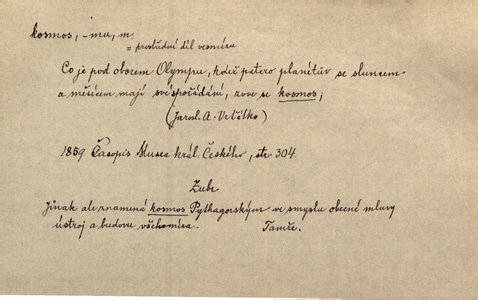 kosmos, -mu, m.
= prostřední díl vesmíru
Co je pod oborem Olympu, kdež patero planétův se sluncem
a měsícem mají své spořádání, zove se kosmos;
(Jarosl. A. Vrťátko)
1859 Časopis Musea král. Českého, str. 304.
Zubr
Jinak ale znamená kosmos Pythagorským ve smyslu obecné mluvy
ústroj a budovu všehomíra. Tamže.